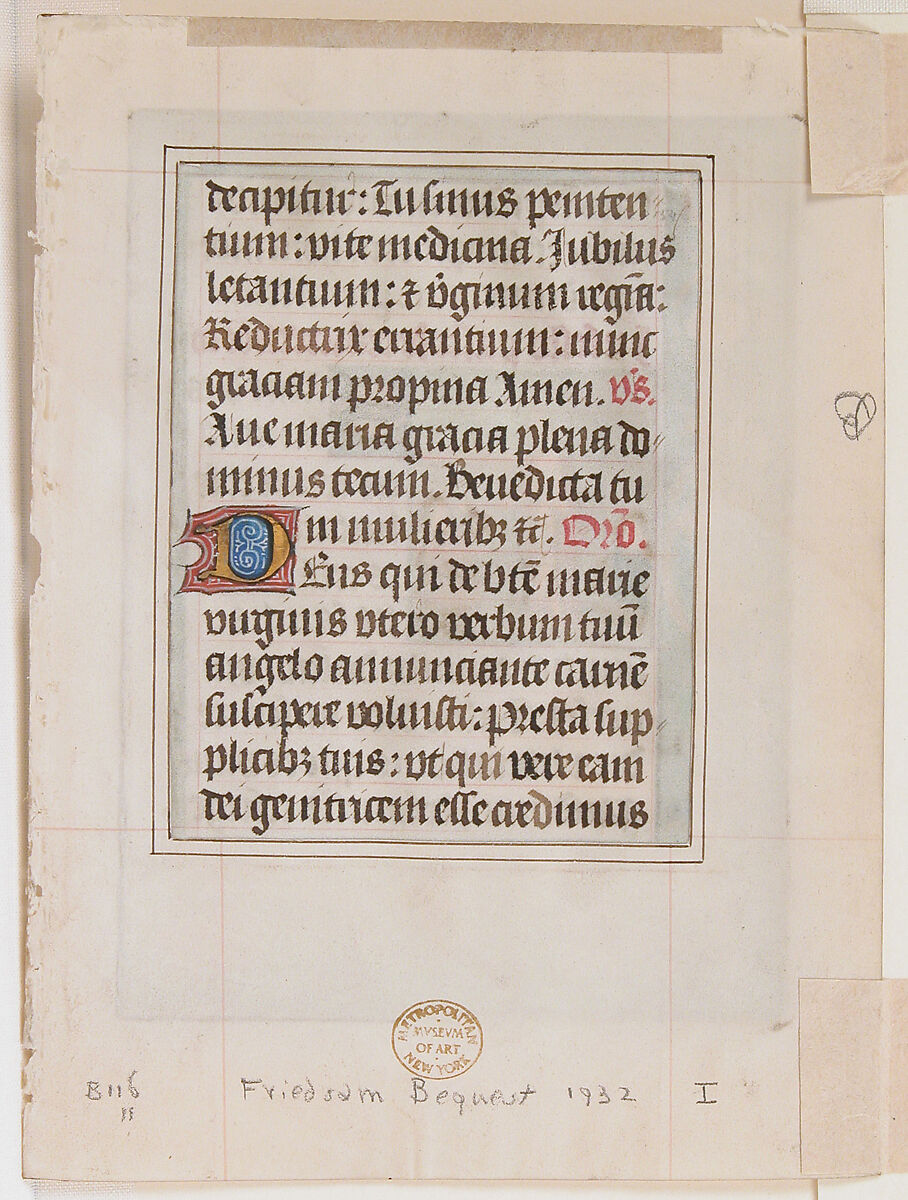 decipitur: Tu sinus peniten-
tium: vite medicina. Jubilus
letantium: ⁊ v̾ginum regīa:
Reductrix errantium: nunc
graciam propina Amen. v̾s.
Aue maria gracia plena do-
minus tecum. Benedicta tu
in mulieribꝫ tc̄. Orō.
Deus qui de btē marie
virginis vtero verbum tuū
angelo annunciante carnē
suscipere voluisti: presta sup-
plicibꝫ tuis: vt qui vere eam
dei genitricem esse credimus
METROPOLITAN
MVSEVM
OF ART
NEW YORK
B116
Friedsam Bequest 1932 I